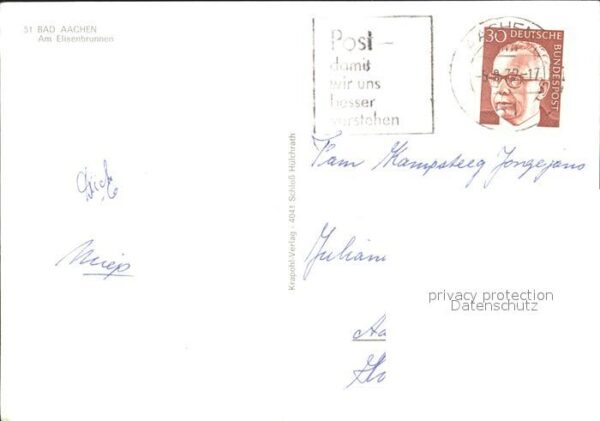 51 BAD AACHEN
Am Elisenbrunnen
Post –
damit
wir uns
besser
verstehen
AACHEN
-17
30 DEUTSCHE
BUNDESPOST
Krapohl-Verlag - 4041 Schloß Hülchrath
Fam Kampsteeg Jongejans
Miep
privacy protection
Datenschutz